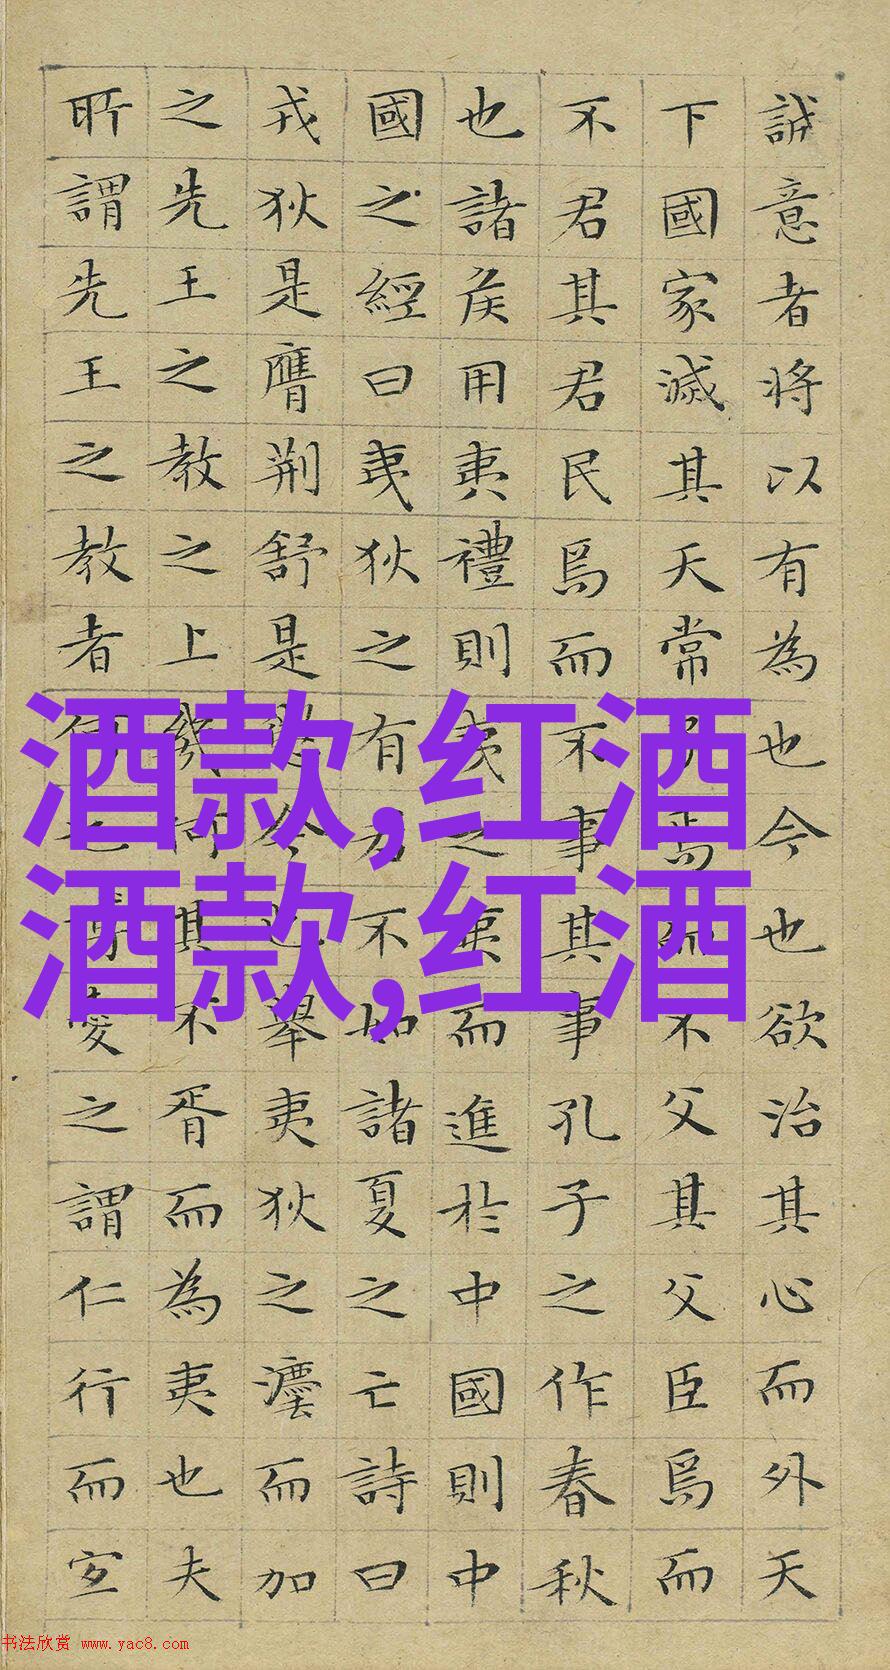 誠意者将以有為也今也欲治其心而外天
下國家滅其天常子焉而不父其父臣焉而
不君其君民焉而不事其事孔子之作春秋
也諸侯用夷禮則夷之夷而進於中國則中
國之經曰夷狄之有君不如諸夏之亡詩曰
戎狄是膺荆舒是懲今也舉夷狄之灋而加
之先王之教之上幾何其不胥而為夷也夫
所謂先王之教者何也博愛之謂仁行而宜
酒款,红酒
酒款,红酒
书法欣赏 www.yac8.com